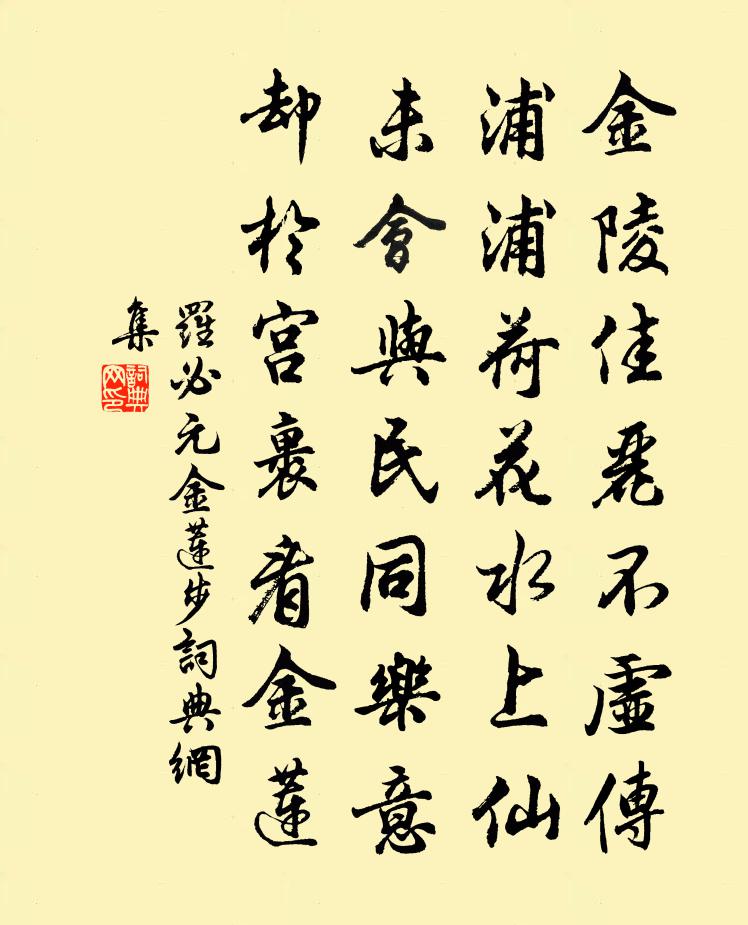 金陵佳麗不虛傳
浦浦荷花水上仙
未會與民同樂意
却於宮裏看金蓮
羅必元金蓮步詞典網
集
詞典
网印